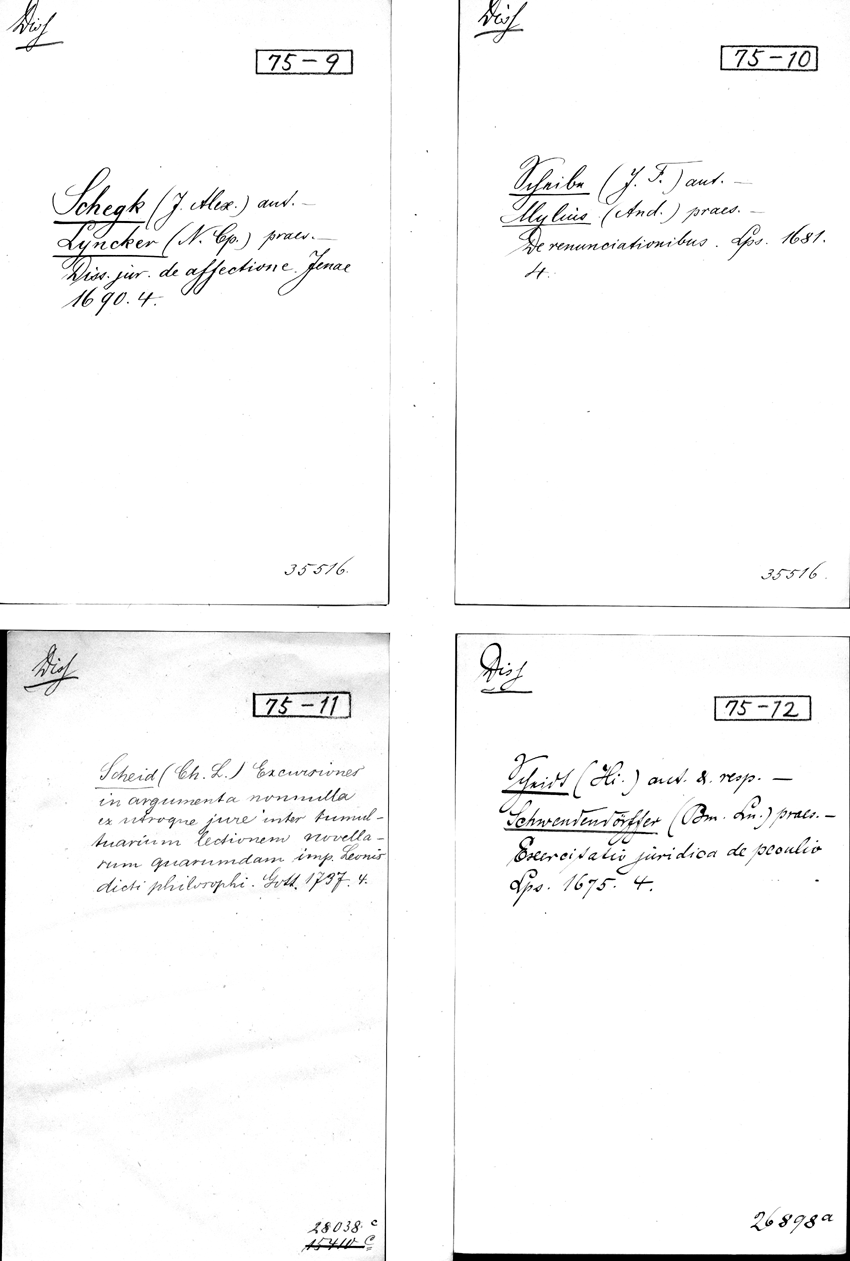 Diss
75-9
Schegk (J. Alex.) aut. —
Lyncker (N. Cp.) praes. —
Diss. jur. de affectione. Jenae
1690. 4.
35516.
Diss
75-10
Scheibe (J. F.) aut. —
Mylius (And.) praes. —
De renunciationibus. Lps. 1681.
4.
35516.
Diss
75-11
Scheid (Ch. L.) Excursiones
in argumenta nonnulla
ex utroque jure inter tumul-
tuarium lectionem novella-
rum quarumdam imp. Leonis
dicti philosophi. Gott. 1737. 4.
28038. c
15410 c
Diss
75-12
Scheidt (Hi.) aut. & resp. —
Schwendendörffer (Bm. Ln.) praes. —
Exercitatio juridica de peculio
Lps. 1675. 4.
26898a